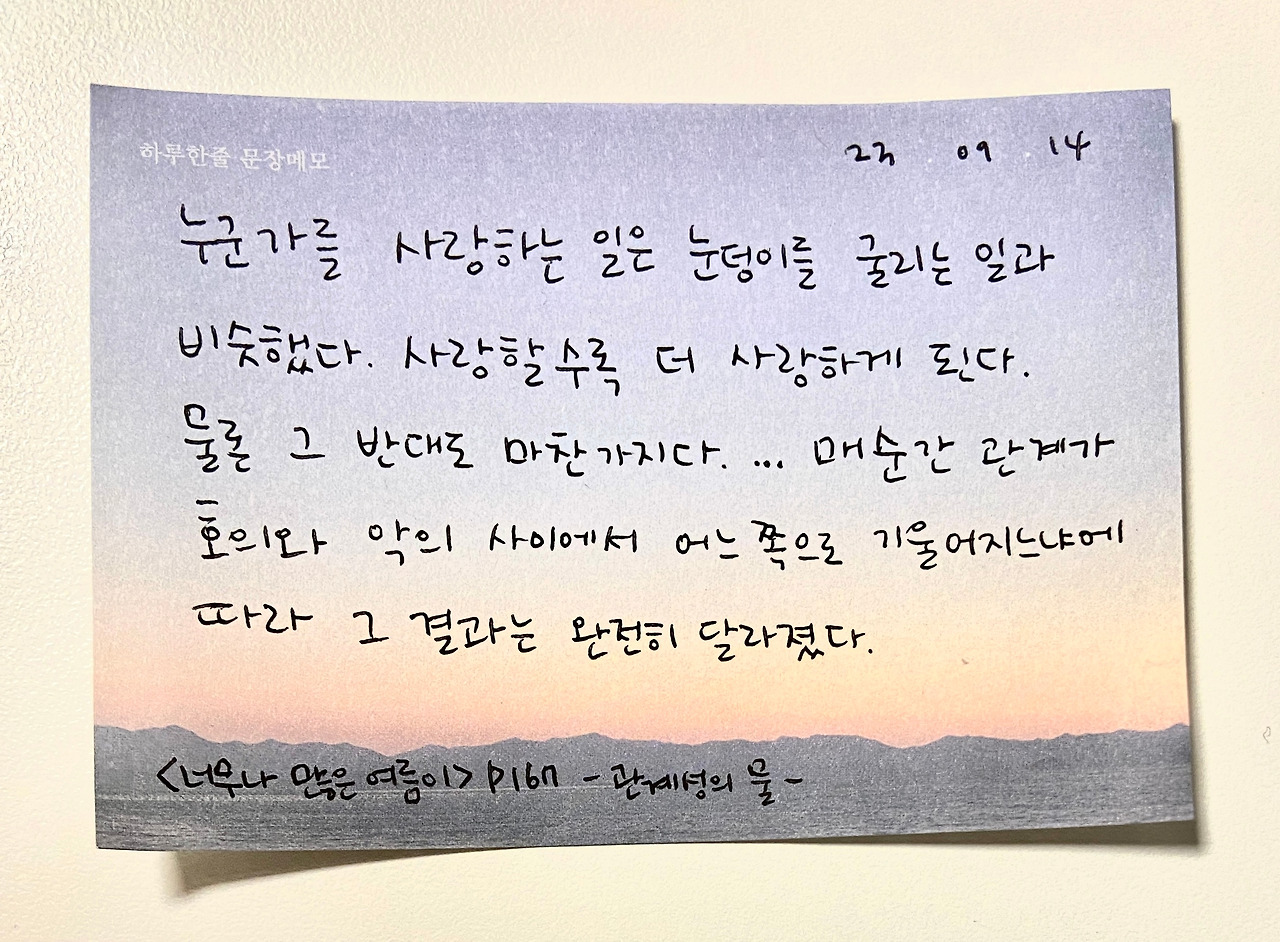 하루한줄 문장메모
23 . 09 . 14
누군가를 사랑하는 일은 눈덩이를 굴리는 일과
비슷했다. 사랑할수록 더 사랑하게 된다.
물론 그 반대도 마찬가지다. ... 매순간 관계가
호의와 악의 사이에서 어느쪽으로 기울어지느냐에
따라 그 결과는 완전히 달라졌다.
<너무나 많은 여름이> P167 - 관계성의 물 -